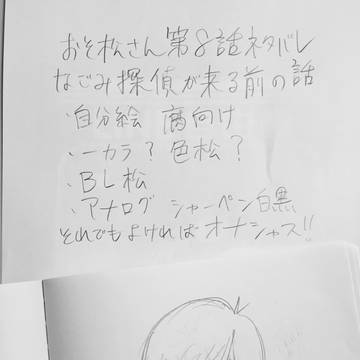 おそ松さん第8話ネタバレ
なごみ探偵が来る前の話
・自分絵 腐向け
・一カラ？色松？
・BL松
・アナログ シャーペン白黒
それでもよければオナシャス!!